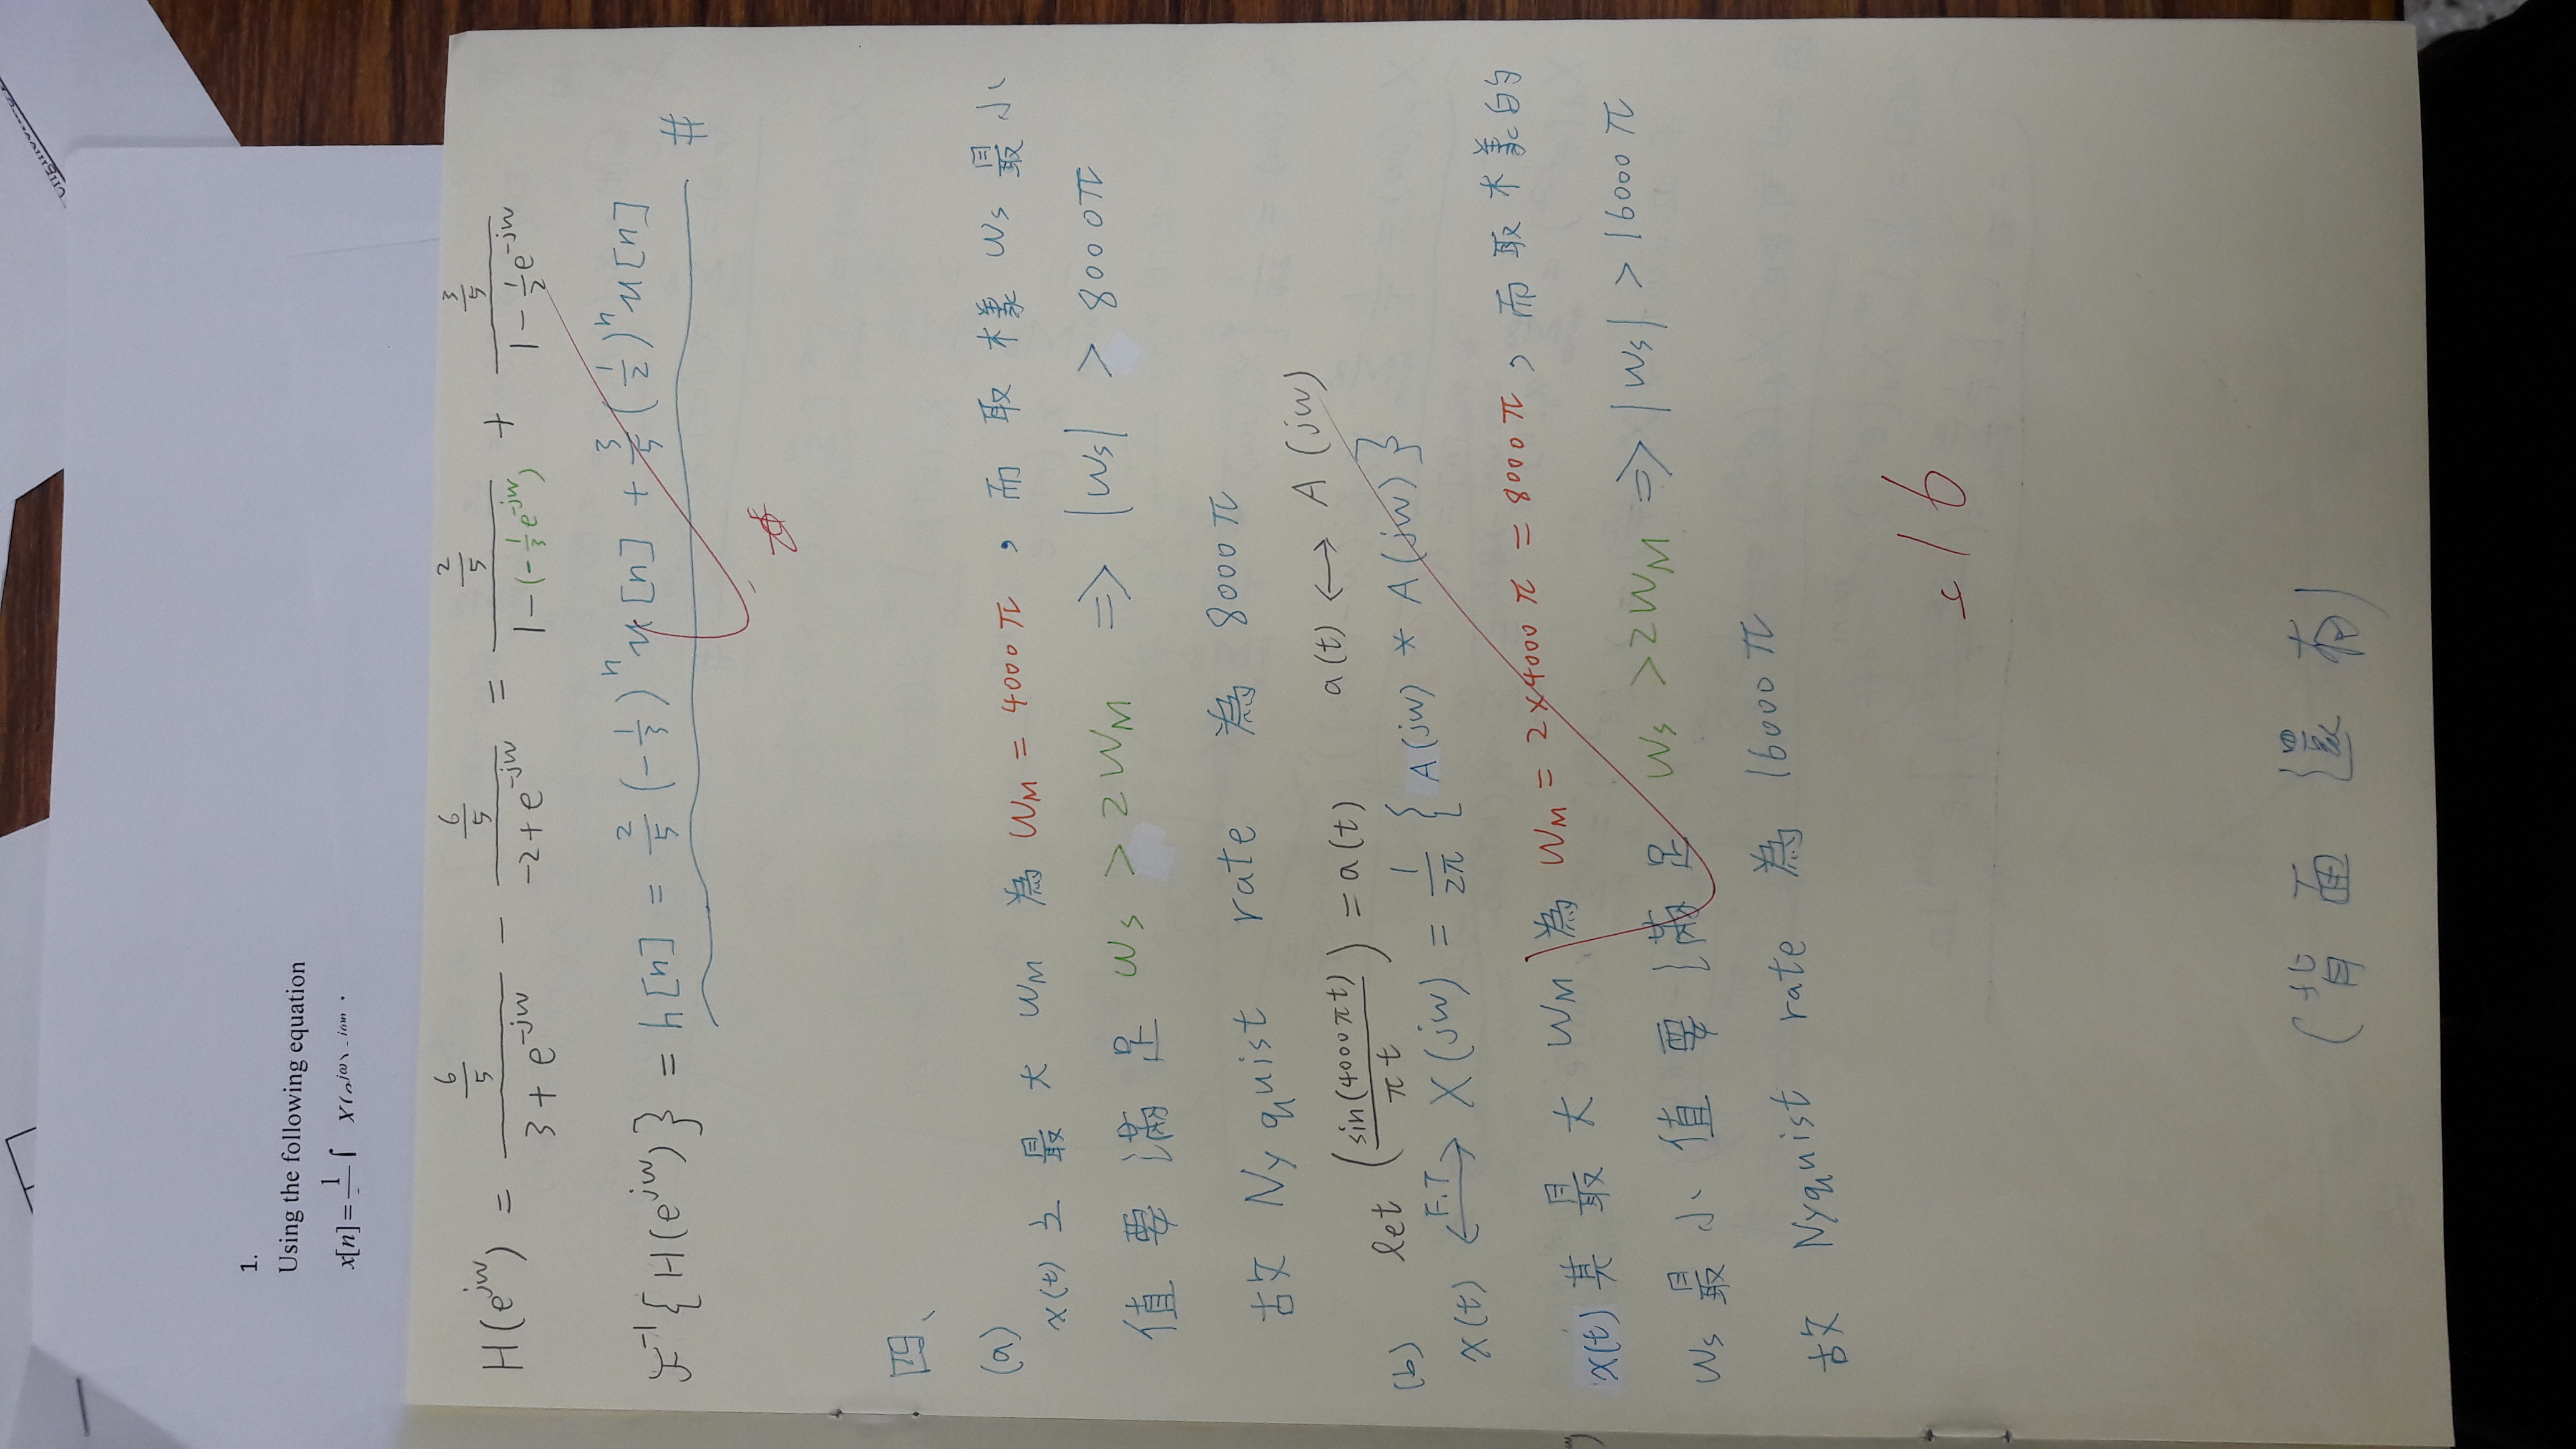 engineering
1.
Using the following equation
x[n] = 1 ∫ X(e^{jω})
H(e^{jw}) = \frac{\frac{6}{5}}{3 + e^{-jw}} - \frac{\frac{6}{5}}{-2 + e^{-jw}} = \frac{\frac{2}{5}}{1 - (-\frac{1}{3}e^{-jw})} + \frac{\frac{3}{5}}{1 - \frac{1}{2}e^{-jw}}
F^{-1}{H(e^{jw})} = h[n] = \frac{2}{5}(-\frac{1}{3})^n u[n] + \frac{3}{5}(\frac{1}{2})^n u[n] #
四、
(a)
x(t) 之最大 W_M 為 W_M = 4000π , 而取樣 W_s 最小
值要滿足 W_s > 2W_M ⇒ |W_s| > 8000π
故 Nyquist rate 為 8000π
(b) let (\frac{sin(4000πt)}{πt}) = a(t) a(t) ↔ A(jw)
x(t) \overset{F.T}{↔} X(jw) = \frac{1}{2π} {A(jw) * A(jw)}
x(t) 其最大 W_M 為 W_M = 2×4000π = 8000π , 而取樣的
W_s 最小值要滿足 W_s > 2W_M ⇒ |W_s| > 16000π
故 Nyquist rate 為 16000π
16
(背面還有)